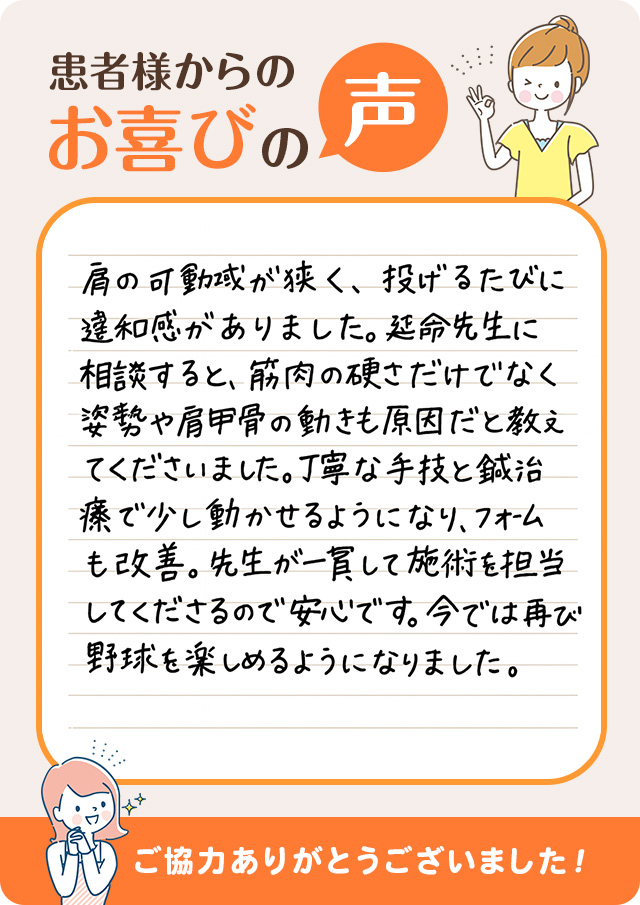 患者様からの
お喜びの声
肩の可動域が狭く、投げるたびに
違和感がありました。延命先生に
相談すると、筋肉の硬さだけでなく
姿勢や肩甲骨の動きも原因だと教え
てくださいました。丁寧な手技と鍼治
療で少し動かせるようになり、フォーム
も改善。先生が一貫して施術を担当
してくださるので安心です。今では再び
野球を楽しめるようになりました。
ご協力ありがとうございました!